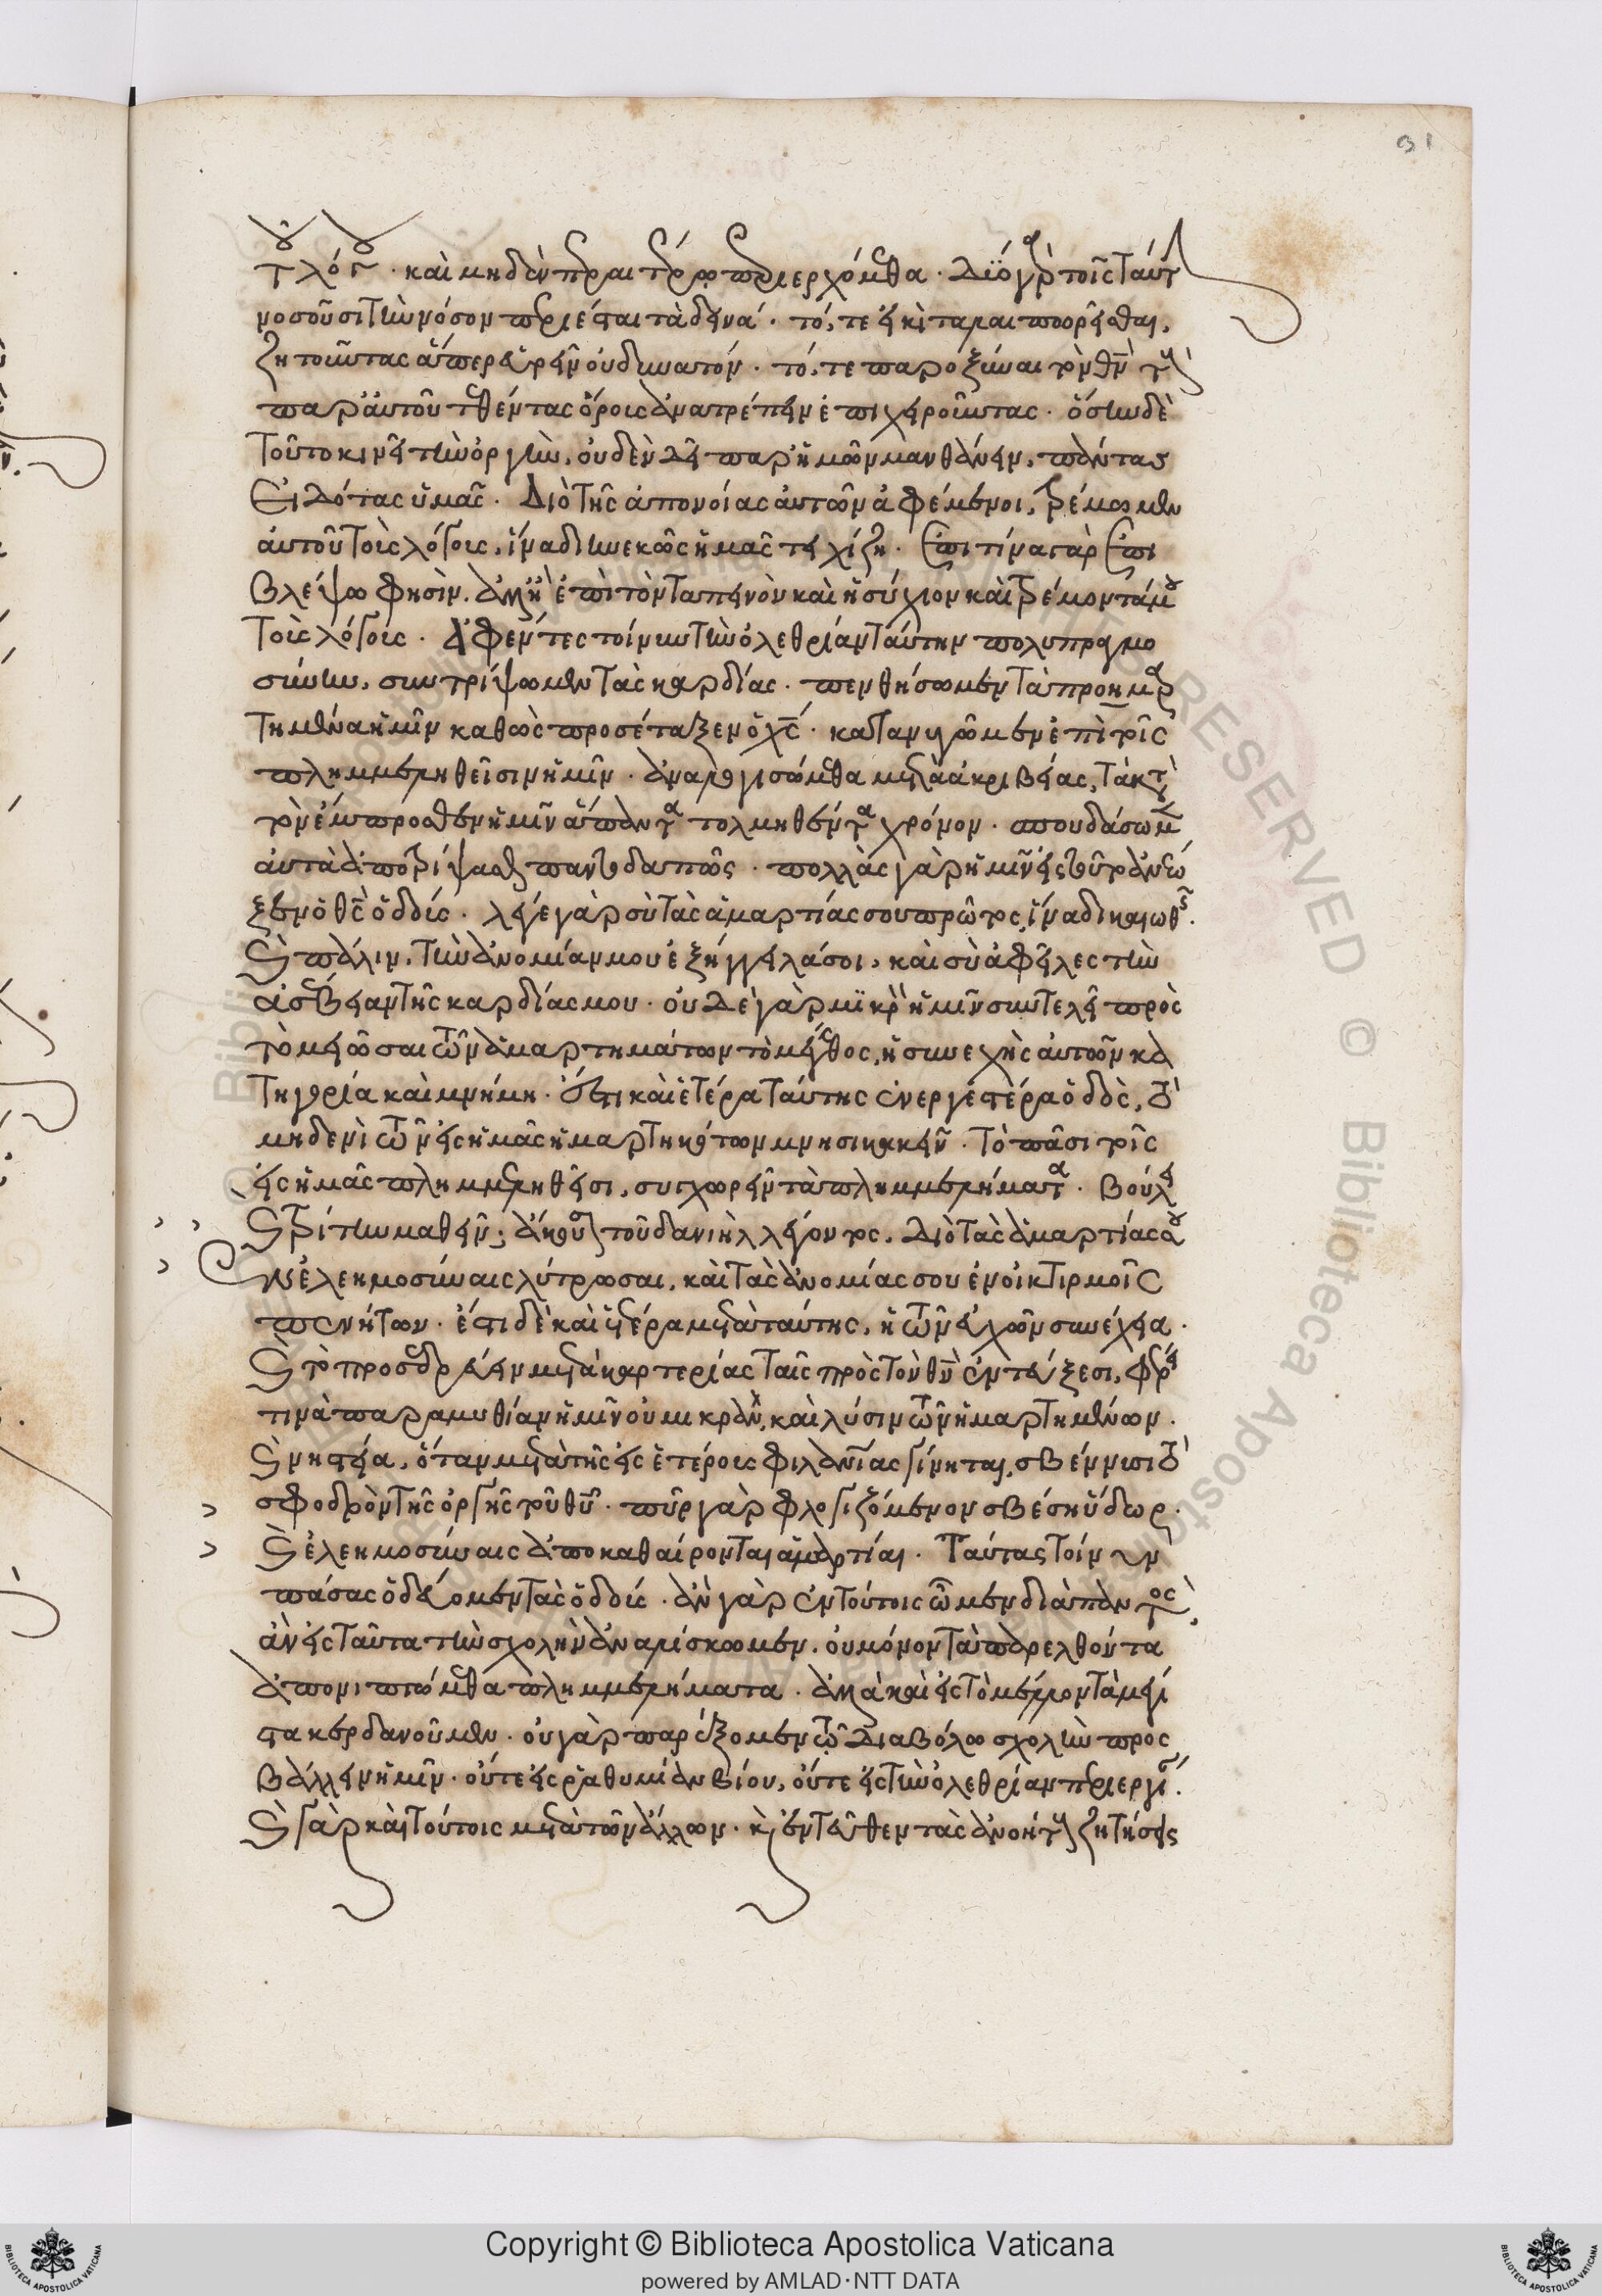 31
τοῦ λόγου · καὶ μηδὲν περαιτέρω περιεργώμεθα · δύο γὰρ τοῖς ταῦτα
νοσοῦσι τὴν νόσον περιέσται τὰ δεινά · τό, τε εἰκῆ ταλαιπωρεῖσθαι,
ζητοῦντας ἅπερ εὑρεῖν οὐ δυνατόν · τό, τε παροξύναι τὸν θν̄ τοὺς
παρ' αὐτοῦ τεθέντας ὅρους ἀνατρέπειν ἐπιχειροῦντας · ὅσην δὲ
τοῦτο κινεῖ τὴν ὀργὴν, οὐδὲν δεῖ παρ' ἡμῶν μανθάνειν, πάντας
εἰδότας ὑμᾶς · Διὸ τῆς ἀπονοίας αὐτῶν ἀφέμενοι, τρέμωμεν
αὐτοῦ τοὺς λόγους, ἵνα διηνεκῶς ἡμᾶς τειχίζη · Ἐπὶ τίνα γὰρ ἐπι
βλέψω φησὶν, ἀλλ' ἢ ἐπὶ τὸν ταπεινὸν καὶ ἡσύχιον καὶ τρέμοντά μου
τοὺς λόγους · Ἀφέντες τοίνυν τὴν ὀλεθρίαν ταύτην πολυπραγμο
σύνην, συντρίψωμεν τὰς καρδίας · πενθήσωμεν τὰ προημαρ
τημένα ἡμῖν καθὼς προσέταξεν ὁ χς̄ · κατανυγῶμεν ἐπὶ τοῖς
πλημμεληθεῖσιν ἡμῖν · ἀναλογισώμεθα μετὰ ἀκριβείας, τὰ κατὰ
τὸν ἔμπροσθεν ἡμῖν ἅπαντα τολμηθέντα χρόνον · σπουδάσωμεν
αὐτὰ ἀποτρίψασθαι παντοδαπῶς · πολλὰς γὰρ ἡμῖν εἰς τοῦτο ἀνέω
ξεν ὁ θς̄ ὁδούς · λέγε γὰρ σὺ τὰς ἁμαρτίας σου πρῶτος, ἵνα δικαιωθῆς ·
καὶ πάλιν, τὴν ἀνομίαν μου ἐξήγγειλά σοι, καὶ σὺ ἀφεῖλες τὴν
ἀσέβειαν τῆς καρδίας μου · οὐδὲ γὰρ μικρὸν ἡμῖν συντελεῖ πρὸς
τὸ μειῶσαι τῶν ἁμαρτημάτων τὸ μέγεθος, ἡ συνεχὴς αὐτῶν κα
τηγορία καὶ μνήμη · ἔστι καὶ ἑτέρα ταύτης ἐνεργεστέρα ὁδὸς, τὸ
μηδενὶ τῶν εἰς ἡμᾶς ἡμαρτηκότων μνησικακεῖν · τὸ πᾶσι τοῖς
εἰς ἡμᾶς πλημμεληθεῖσι, συγχωρεῖν τὰ πλημμελήματα · βούλει
καὶ τρίτην μαθεῖν; ἄκουσον τοῦ δανιὴλ λέγοντος, διὸ τὰς ἁμαρτίας σου
ἐν ἐλεημοσύναις λύτρωσαι, καὶ τὰς ἀνομίας σου ἐν οἰκτιρμοῖς
πενήτων · ἔστι δὲ καὶ ἑτέρα μετὰ ταύτης, ἡ τῶν εὐχῶν συνέχεια ·
καὶ τὸ προσεδρεύειν μετὰ καρτερίας ταῖς πρὸς τὸν θν̄ ἐντεύξεσι, φέρει
τινὰ παραμυθίαν ἡμῖν οὐ μικρὰν, καὶ λύσιν τῶν ἡμαρτημένων ·
καὶ νηστεία, ὅταν μετὰ τῆς εἰς ἑτέρους φιλανίας γίνηται, σβέννυσι τὸ
σφοδρὸν τῆς ὀργῆς τοῦ θῡ · πῦρ γὰρ φλογιζόμενον σβέση ὕδωρ ·
καὶ ἐλεημοσύναις ἀποκαθαίρονται ἁμαρτίαι · Ταύτας τοίνυν
πάσας ὁδεύομεν τὰς ὁδούς · ἂν γὰρ ἐν τούτοις ὦμεν διὰ παντὸς,
ἂν εἰς ταῦτα τὴν σχολὴν ἀναλίσκωμεν, οὐ μόνον τὰ παρελθόντα
ἀπονιψώμεθα πλημμελήματα · ἀλλὰ καὶ εἰς τὸ μέλλον τὰ μέγι
στα κερδανοῦμεν · οὐ γὰρ παρέξομεν τῶ διαβόλω σχολὴν προς
βάλλειν ἡμῖν · οὔτε εἰς ῥαθυμίαν βίου, οὔτε εἰς τὴν ὀλεθρίαν περιεργίαν ·
καὶ γὰρ καὶ τούτοις μετὰ τῶν ἄλλων · καὶ ἐντεῦθεν τὰς ἀνοήτους ζητήσεις
Copyright © Biblioteca Apostolica Vaticana
powered by AMLAD·NTT DATA